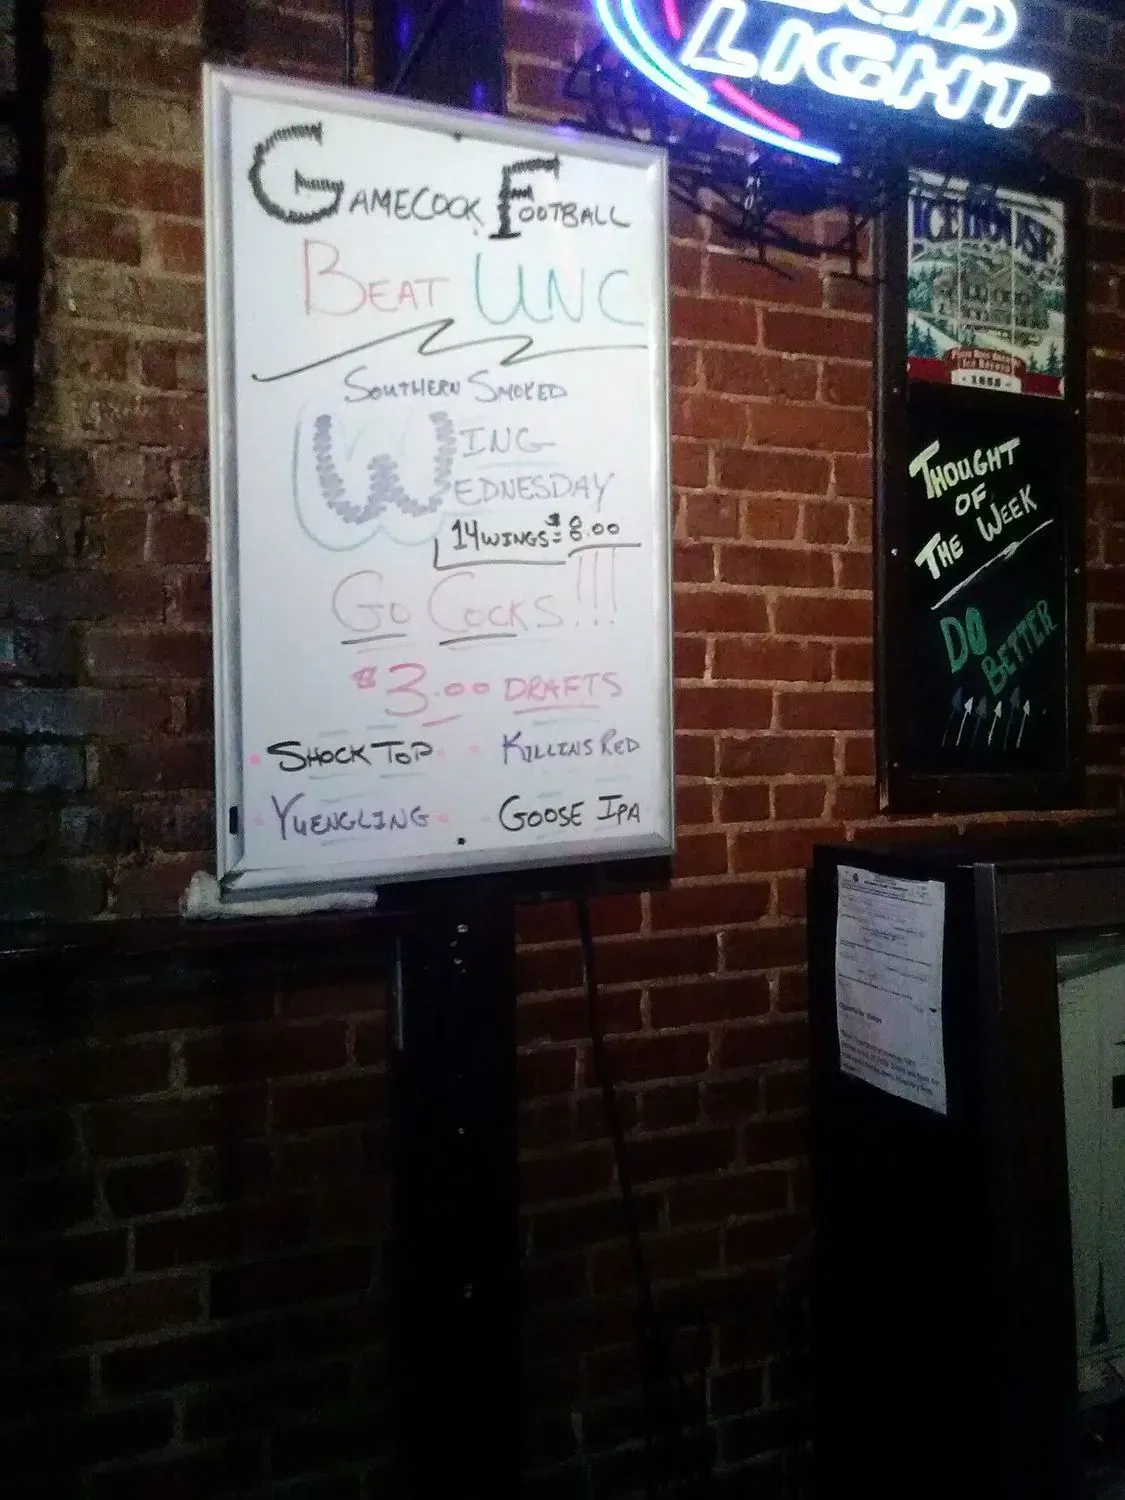 BUD
LIGHT
GAMECOCK FOOTBALL
BEAT UNC
SOUTHERN SMOKED
WING
WEDNESDAY
14 WINGS = $8.00
GO COCKS!!!
$3.00 DRAFTS
SHOCK TOP
KILLINS RED
YUENGLING
GOOSE IPA
ICEHOUSE
1855
THOUGHT
OF
THE WEEK
DO
BETTER